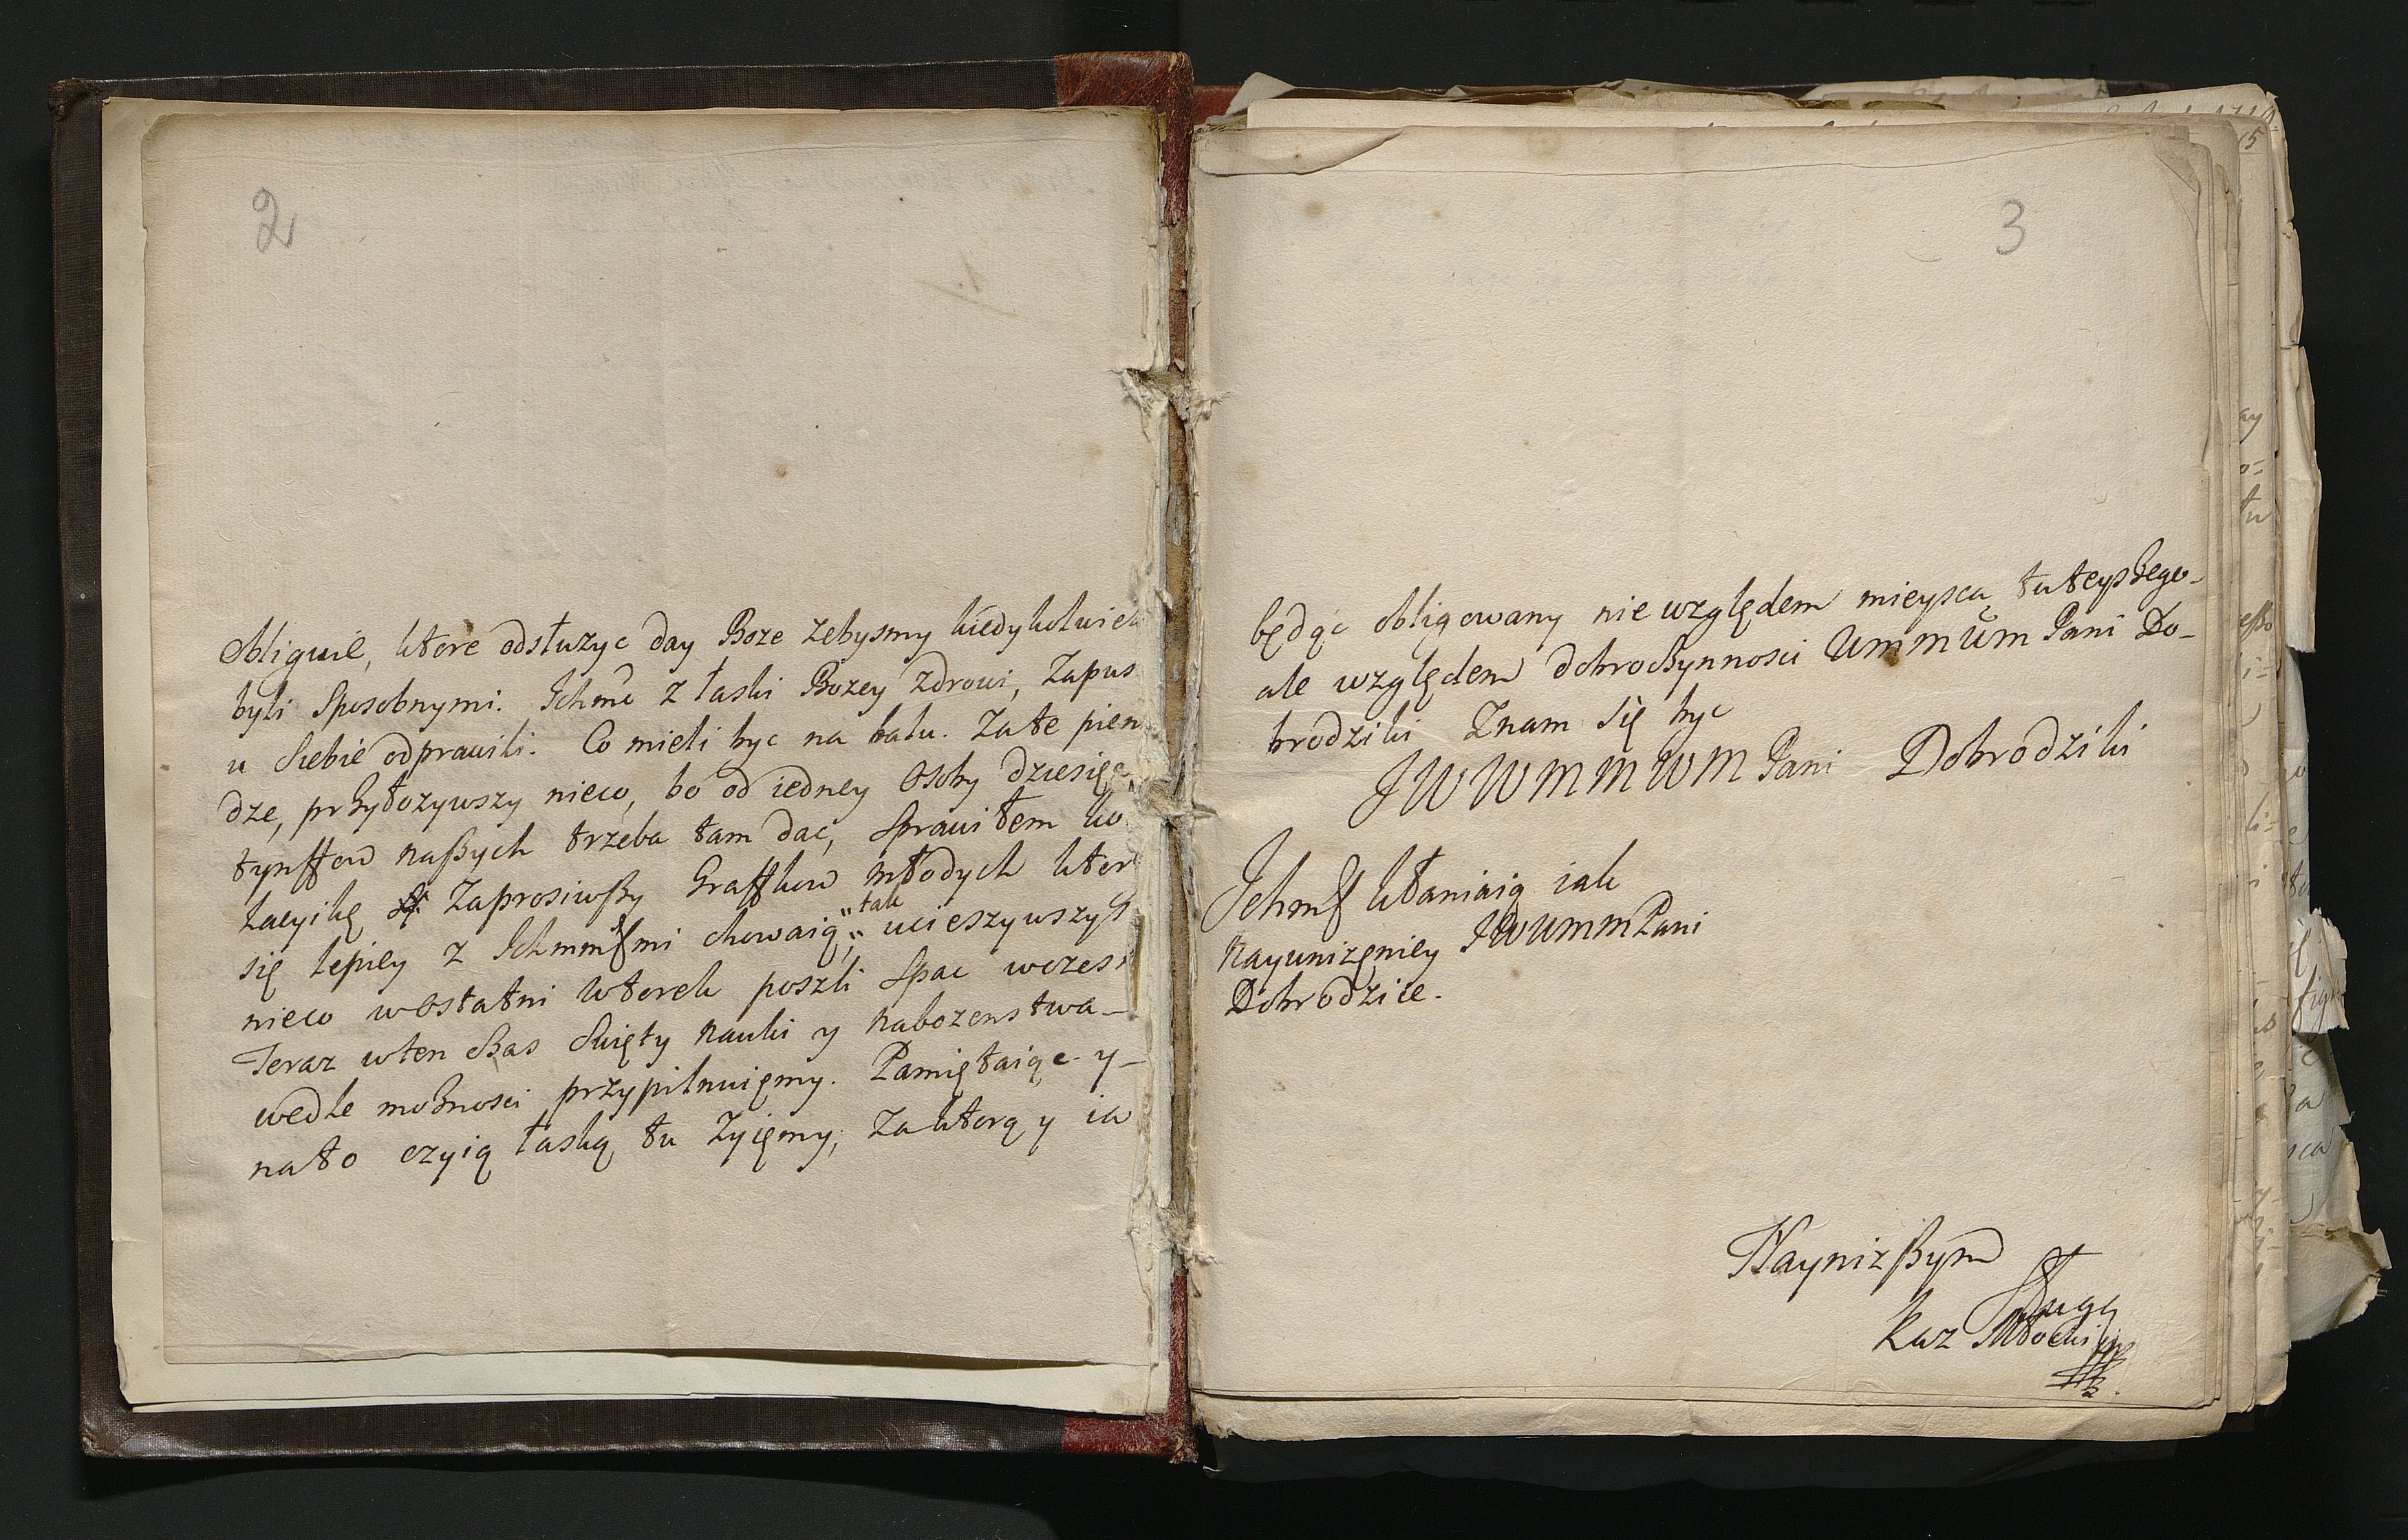 2
obliguie, ktore odsłuzyc day Boze zebysmy kiedykolwiek
byli sposobnymi. Ichmć z łaski Bozey zdrowi, zapus
u siebie odprawili. Co mieli byc na balu. Za te pien
dze, przyłozywszy nieco, bo od iedney osoby dziesięc
tynffow naßych trzeba tam dac, sprawiłem ko
lacyikę zaprosiwßy Graffkow młodych ktor
się lepiey z Ichmmśćmi chowaią, "tak ucieszywszy s
nieco w ostatni wtorek poszli spac wczesn
Teraz w ten czas Swięty nauki y nabozenstwa
wedle moznosci przypilnuięmy. Pamiętaiąc y
na to czyią łaską tu zyięmy, za ktorą y ia
3
będąc obligowany nie względem mieysca tuteyszego
ale względem dobroczynnosci Wmmwm Pani Do-
brodziki Znam się byc
JWWMMWM Pani Dobrodziki
Ichmść kłaniaią iak
nayunizęniey JWWMM Pani
Dobrodzice.
Naynizßym
Sługą
Kaz Młocki